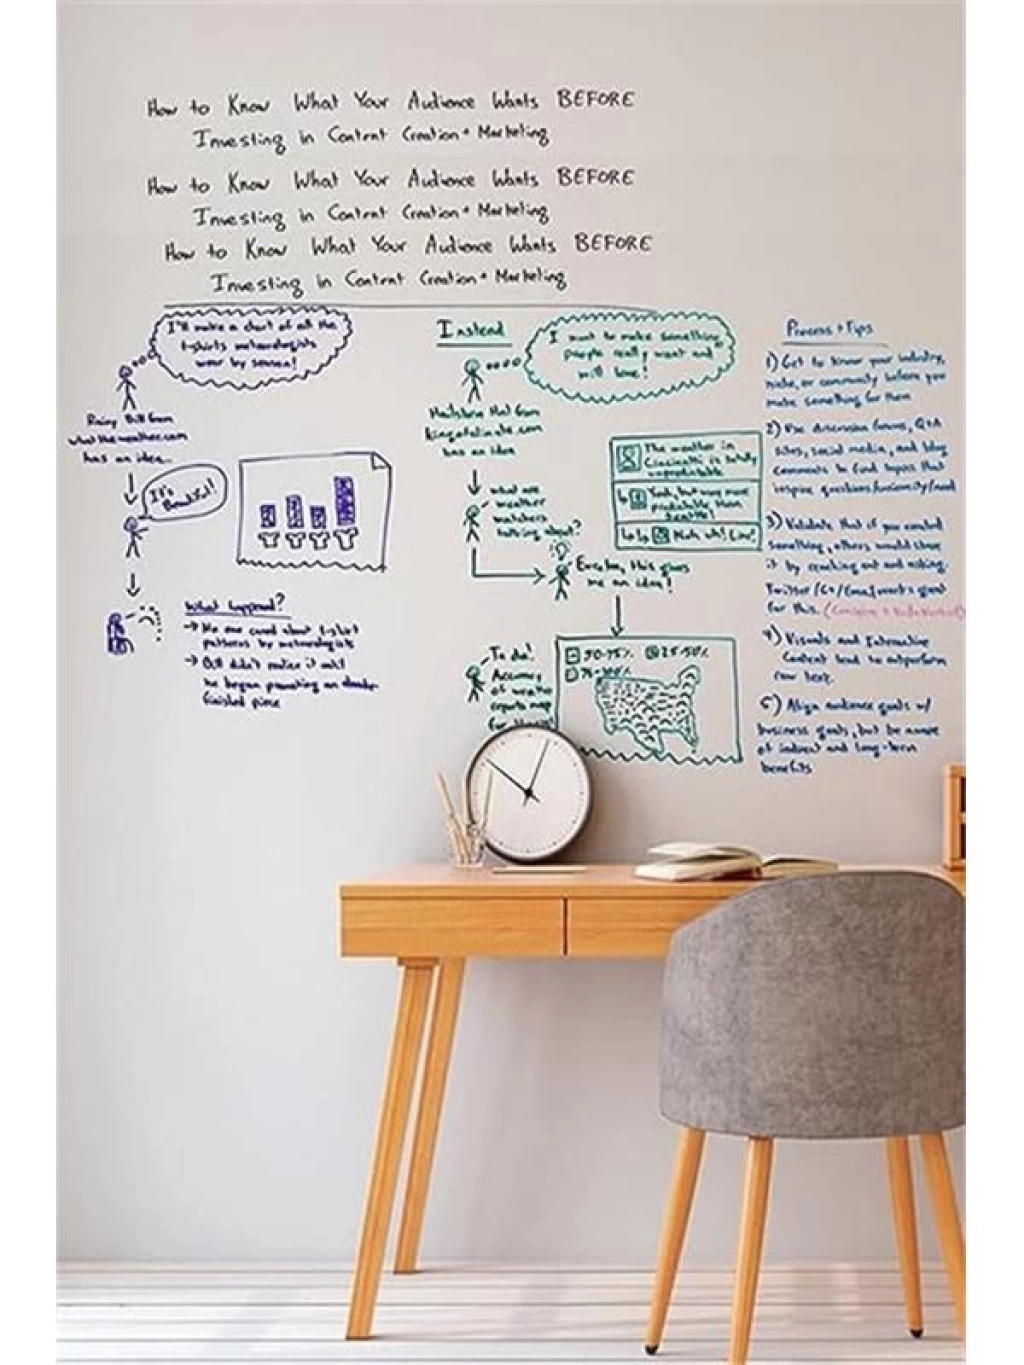 How to Know What Your Audience Wants BEFORE
Investing in Content Creation + Marketing
How to Know What Your Audience Wants BEFORE
Investing in Content Creation + Marketing
How to Know What Your Audience Wants BEFORE
Investing in Content Creation + Marketing
I'll make a chart of all the
t-shirts meteorologists
wear by season!
Rainy Bill from
whattheweather.com
has an idea...
It's
Beautiful!
What happened?
→ No one cared about t-shirt
patterns by meteorologists
→ Bill didn't realize it until
he began promoting an
finished piece
Instead
I want to make something
people really want and
will love!
Hailstorm Hal from
kingofclimate.com
has an idea
what are
weather
watchers
talking about?
The weather in
Cincinatti is totally
unpredictable
Yeah, but way more
predictable than
Seattle!
Nuh uh! Liar!
Eureka, this gives
me an idea!
To do!
Accuracy
of weather
reports map
for
50-75% 25-50%
75-100%
Process + Tips
1) Get to know your industry,
niche, or community before you
make something for them
2) Use discussion forums, Q+A
sites, social media, and blog
comments to find topics that
inspire questions/curiosity/need
3) Validate that if you created
something, others would share
it by reaching out and asking.
Twitter/G+/Email work great
for this.
4) Visuals and Interactive
Content tend to outperform
raw text.
5) Align audience goals w/
business goals, but be aware
of indirect and long-term
benefits